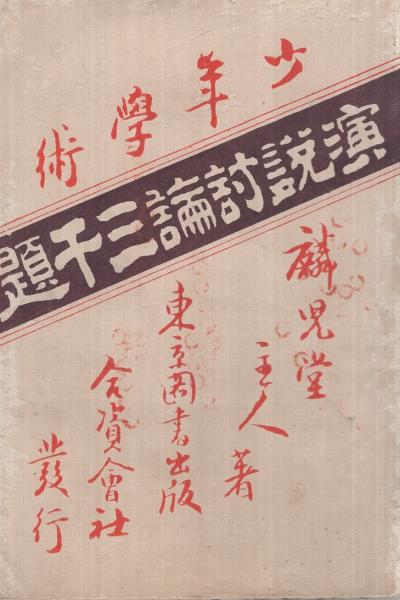 少年學術
演說討論三千題
麟児堂
主人著
東京圖書出版
合資會社
發行